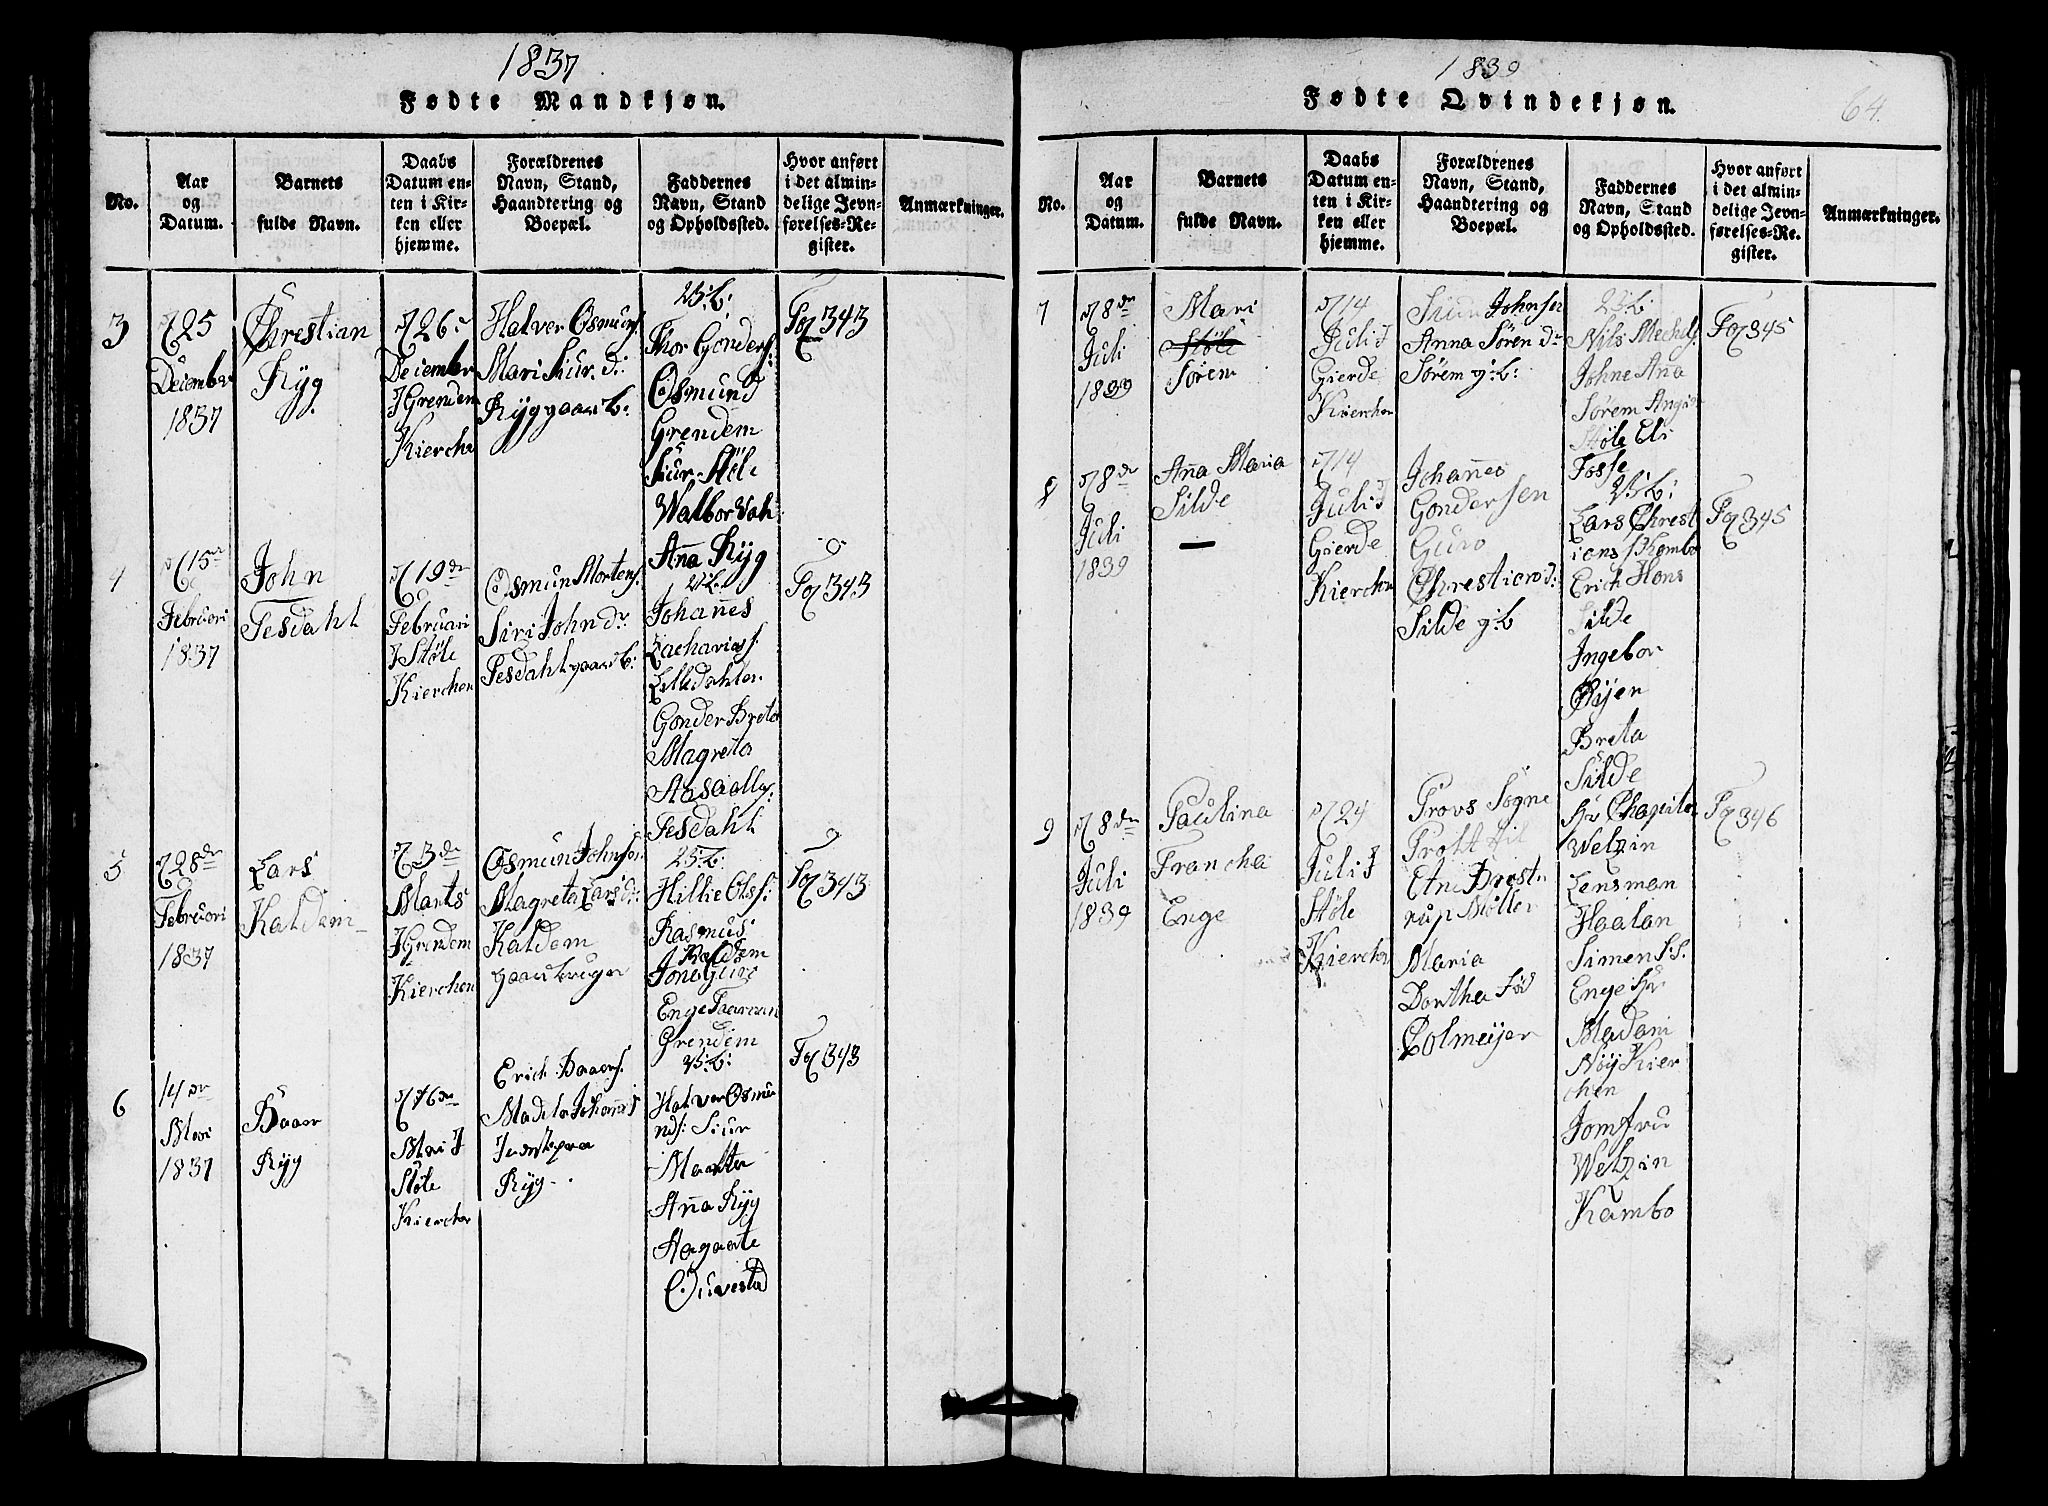 1837
Fødte Mandkjøn.
No.
Aar
og
Datum.
Barnets
fulde Navn.
Daabs
Datum en-
ten i Kir-
ken eller
hjemme.
Forældrenes
Navn, Stand,
Haandtering og
Boepæl.
Faddernes
Navn, Stand
og Opholdssted.
Hvor anført
i det almin-
delige Jevn-
førelses-Re-
gister.
Anmærkninger.
3
25
Deiember
1837
Chrestian
Ryg
26
Deiember
J Grendem
Kierche
Halver Osmuns.
Mari Siur. d:
Ryg gaarb:
Thor Gonders:
Osmund
Grendem
Siur Støle
Walbor Vah
Ana Ryg
Fq 343
4
15
Februari
1837
John
Tesdahl
19de
Februari
J Støle
Kierchen
Osmun Mortens.
Siri John dr
Tesdahl gaarb:
Johanes
Zacharias:
Lilledahlen
Gonder Breta
Magreta
Aasa
Tesdahl
Fq 343
5
28de
Februari
1837
Lars
Kaldem
3de
Marts
J Grendem
Kierchen
Osmun Johnsen
Magreta Lars d:
Kaldem
gaarbruger
Hillie Olss:
Rasmus
Kaldem
Jone Guro
Enge Taaraan
Grendem
Fq 343
6
14
Mai
1837
Baar
Ryg
16
Mai J
Støle
Kierchen
Erich Baars.
Madela Johanes
Ryg
Halver Osmu
nds: Siur
Marta
Ana Ryg
Aagaarte
Fq 343
1839
Fødte Qvindekjøn.
64.
No.
Aar
og
Datum.
Barnets
fulde Navn.
Daabs
Datum en-
ten i Kir-
ken eller
hjemme.
Forældrenes
Navn, Stand,
Haandtering og
Boepæl.
Faddernes
Navn, Stand
og Opholdssted.
Hvor anført
i det almin-
delige Jevn-
førelses-Re-
gister.
Anmærkninger.
7
8de
Juli
1839
Mari
Støle
Sørem
14
Juli J
Gierde
Kierchen
Siur Johnsen
Anna Søren dr
Sørem g:b:
Nils Mechels
Johne Ana
Sørem
Støle Eli
Fosse
Fq 345
8
8de
Juli
1839
Ana Maria
Silde
14
Juli J
Gierde
Kierchen
Johanes
Gondersen
Guro
Chrestian d:
Silde g:b
Lars Chrest
ians
Erich Hans
Silde
Ingebor
Øyen
Breta
Silde
Fq 345
9
8de
Juli
1839
Paulina
Francha
Enge
24
Juli J
Støle
Kierchen
Provs Sogne
Etne
Møller
Maria
Dorthea Fød
Colmeyer
Hr Chapitan
Welzin
Lensman
Haalan
Simen S.S.
Enge Hr
Madam
Nøykier
chen
Jomfru
Welzin
Kambo
Fq 346